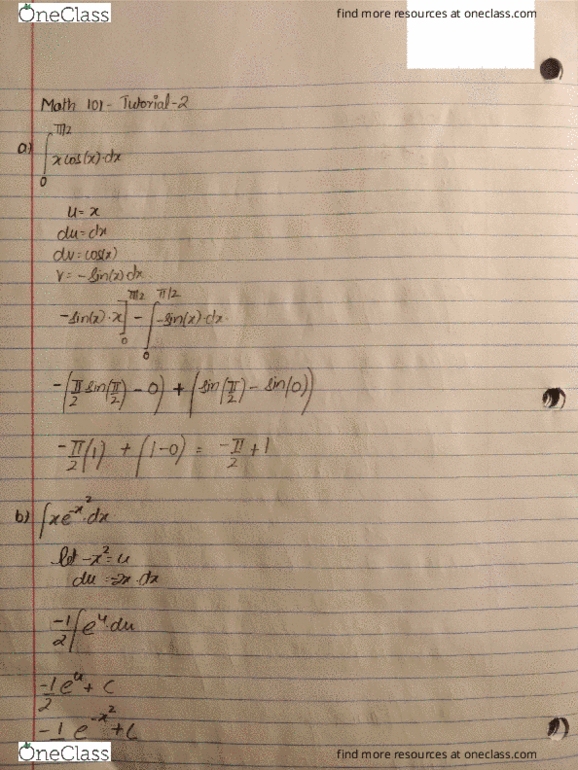 OneClass find more resources at oneclass.com
Math 101 - Tutorial-2
a) ∫₀^π/2 x cos(x)·dx
u = x
du = dx
dv = cos(x)
v = - sin(x) dx
-sin(x)·x]₀^π/2 - ∫₀^π/2 -sin(x)·dx.
-(π/2 sin(π/2) - 0) + (sin(π/2) - sin(0))
-π/2(1) + (1-0) = -π/2 + 1
b) ∫xe^-x²·dx
let -x² = u
du = -2x·dx
-1/2 ∫e^u·du
-1/2 e^u + C
-1 e^-x² + C
OneClass find more resources at oneclass.com